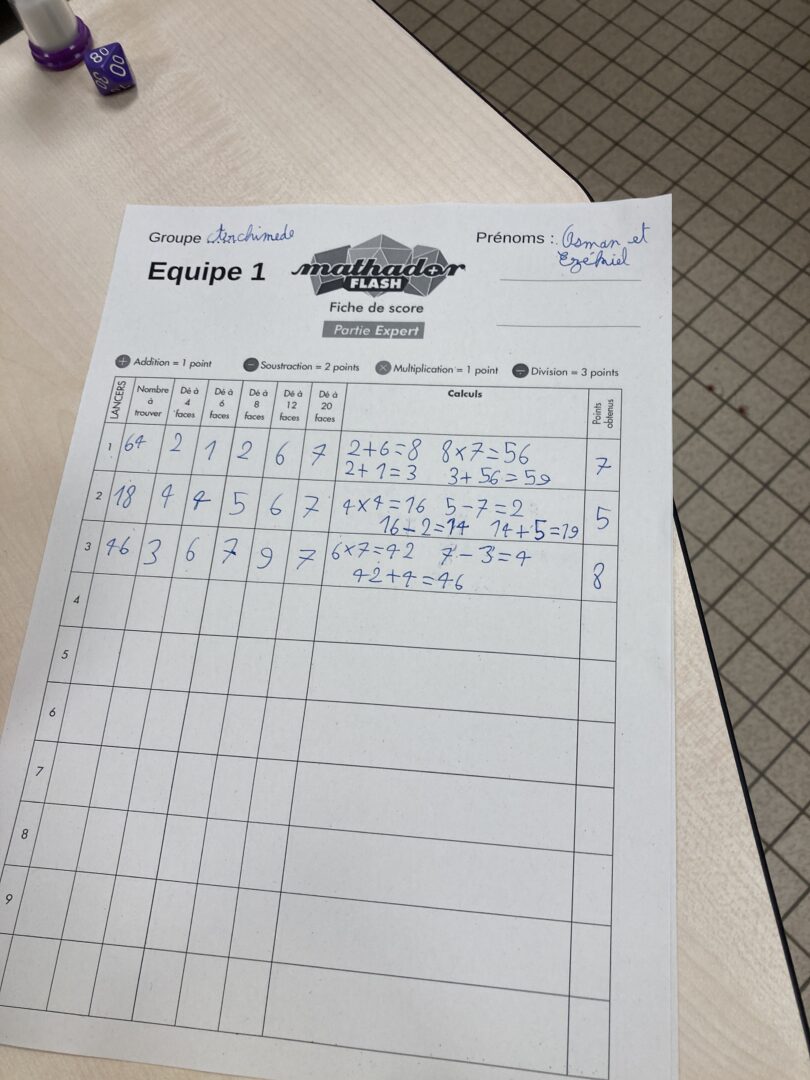 80
00
Groupe Archimede
Prénoms : Osman et
Ezékiel
Equipe 1
mathador
FLASH
Fiche de score
Partie Expert
+ Addition = 1 point − Soustraction = 2 points × Multiplication = 1 point ÷ Division = 3 points
LANCERS Nombre à trouver Dé à 4 faces Dé à 6 faces Dé à 8 faces Dé à 12 faces Dé à 20 faces Calculs Points obtenus
1 64 2 1 2 6 7 2+6=8 8×7=56 7
2+1=3 3+56=59
2 18 4 4 5 6 7 4×4=16 5-7=2 5
16-2=14 14+5=19
3 46 3 6 7 9 7 6×7=42 7-3=4 8
42+4=46
4
5
6
7
8
9